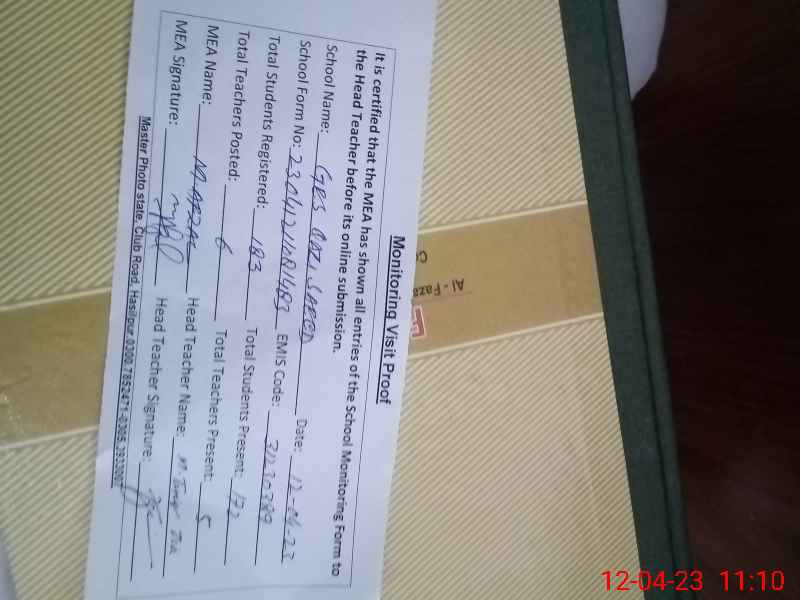 Monitoring Visit Proof
It is certified that the MEA has shown all entries of the School Monitoring Form to
the Head Teacher before its online submission.
School Name: GPS QAZI SAEED Date: 12-04-23
School Form No: EMIS Code: 31230389
Total Students Registered: 183 Total Students Present: 172
Total Teachers Posted: 6 Total Teachers Present: 5
MEA Name: M. AFZAL Head Teacher Name:
MEA Signature: Head Teacher Signature:
Master Photo state, Club Road, Hasilpur.
Al-Faza
12-04-23 11:10